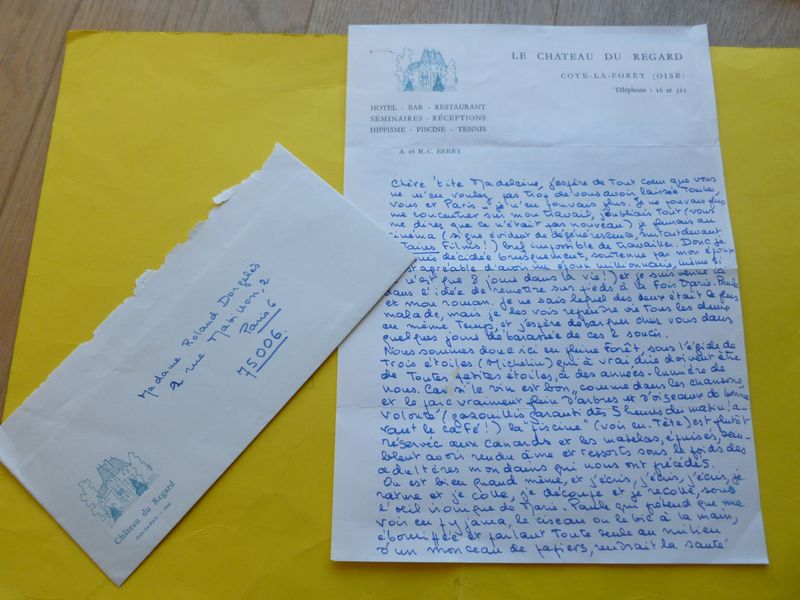 LE CHATEAU DU REGARD
COYE-LA-FORÊT (OISE)
Téléphone : 16 et 313
HOTEL - BAR - RESTAURANT
SÉMINAIRES - RÉCEPTIONS
HIPPISME - PISCINE - TENNIS
A. et M.-C. BERRY
Chère 'tite Madeleine, j'espère de tout coeur que vous
ne m'en voulez pas trop de vous avoir laissée tomber,
vous et Paris - je n'en pouvais plus. Je ne pouvais plus
me concentrer sur mon travail, j'oubliais tout (vous
me direz que ce n'était pas nouveau) je
cinéma (signe évident de dégénérescence, surtout devant
certains Films !) bref impossible de travailler. Donc je
me suis décidée brusquement, soutenue par mon époux
est agréable d'avoir un époux millionnaire, même si
n'est que 8 jours dans la vie !) et je suis venue ici
dans l'idée de remettre sur pieds à la fois Marie-Paule
et mon roman. Je ne sais lequel des deux était le plus
malade, mais je les vois reprendre vie tous les deux
en même temps, et j'espère débarquer chez vous dans
quelques jours débarassée de ces 2 soucis.
Nous sommes donc ici en pleine forêt, sous l'égide de
Trois étoiles (Michelin) qui à vrai dire doivent être
de toutes petites étoiles, à des années-lumière de
nous. Car si le vin est bon, comme dans les chansons,
et le parc vraiment plein d'arbres et d'oiseaux de bonne
volonté (gazouillis garanti dès 5 heures du matin ! a-
vant le café !) la "piscine" (voir en-tête) est plutôt
réservée aux canards et les matelas, épuisés, sem-
blent avoir rendu âme et ressorts sous le poids des
adultères mondains qui nous ont précédés.
On est bien quand même, et j'écris, j'écris, j'écris, je
rature et je colle, je découpe et je recolle, sous
l'oeil ironique de Marie-Paule qui prétend que me
voir en pyjama, le ciseau ou le bic à la main,
ébouriffée et parlant toute seule au milieu
d'un monceau de papiers, rendrait la santé
Madame Roland Dorgelès
2 rue Mabillon, 2
Paris 6
75006.
Château du Regard
Coye-La-Forêt - Oise